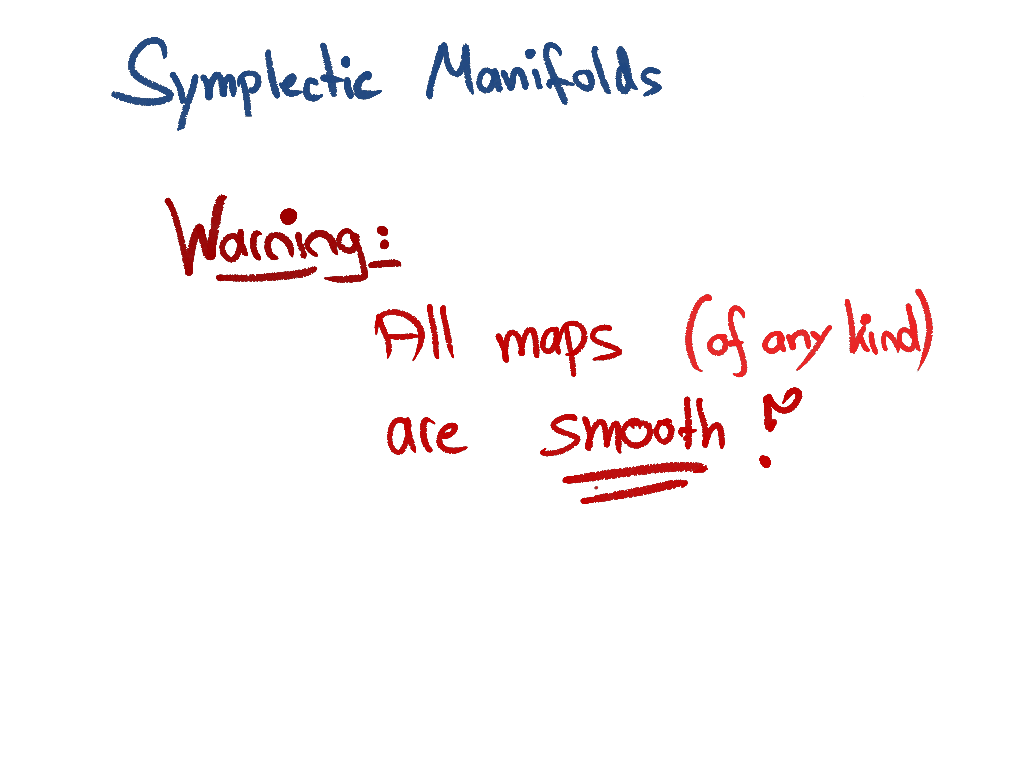 Symplectic Manifolds
Warning:
All maps (of any kind)
are smooth !